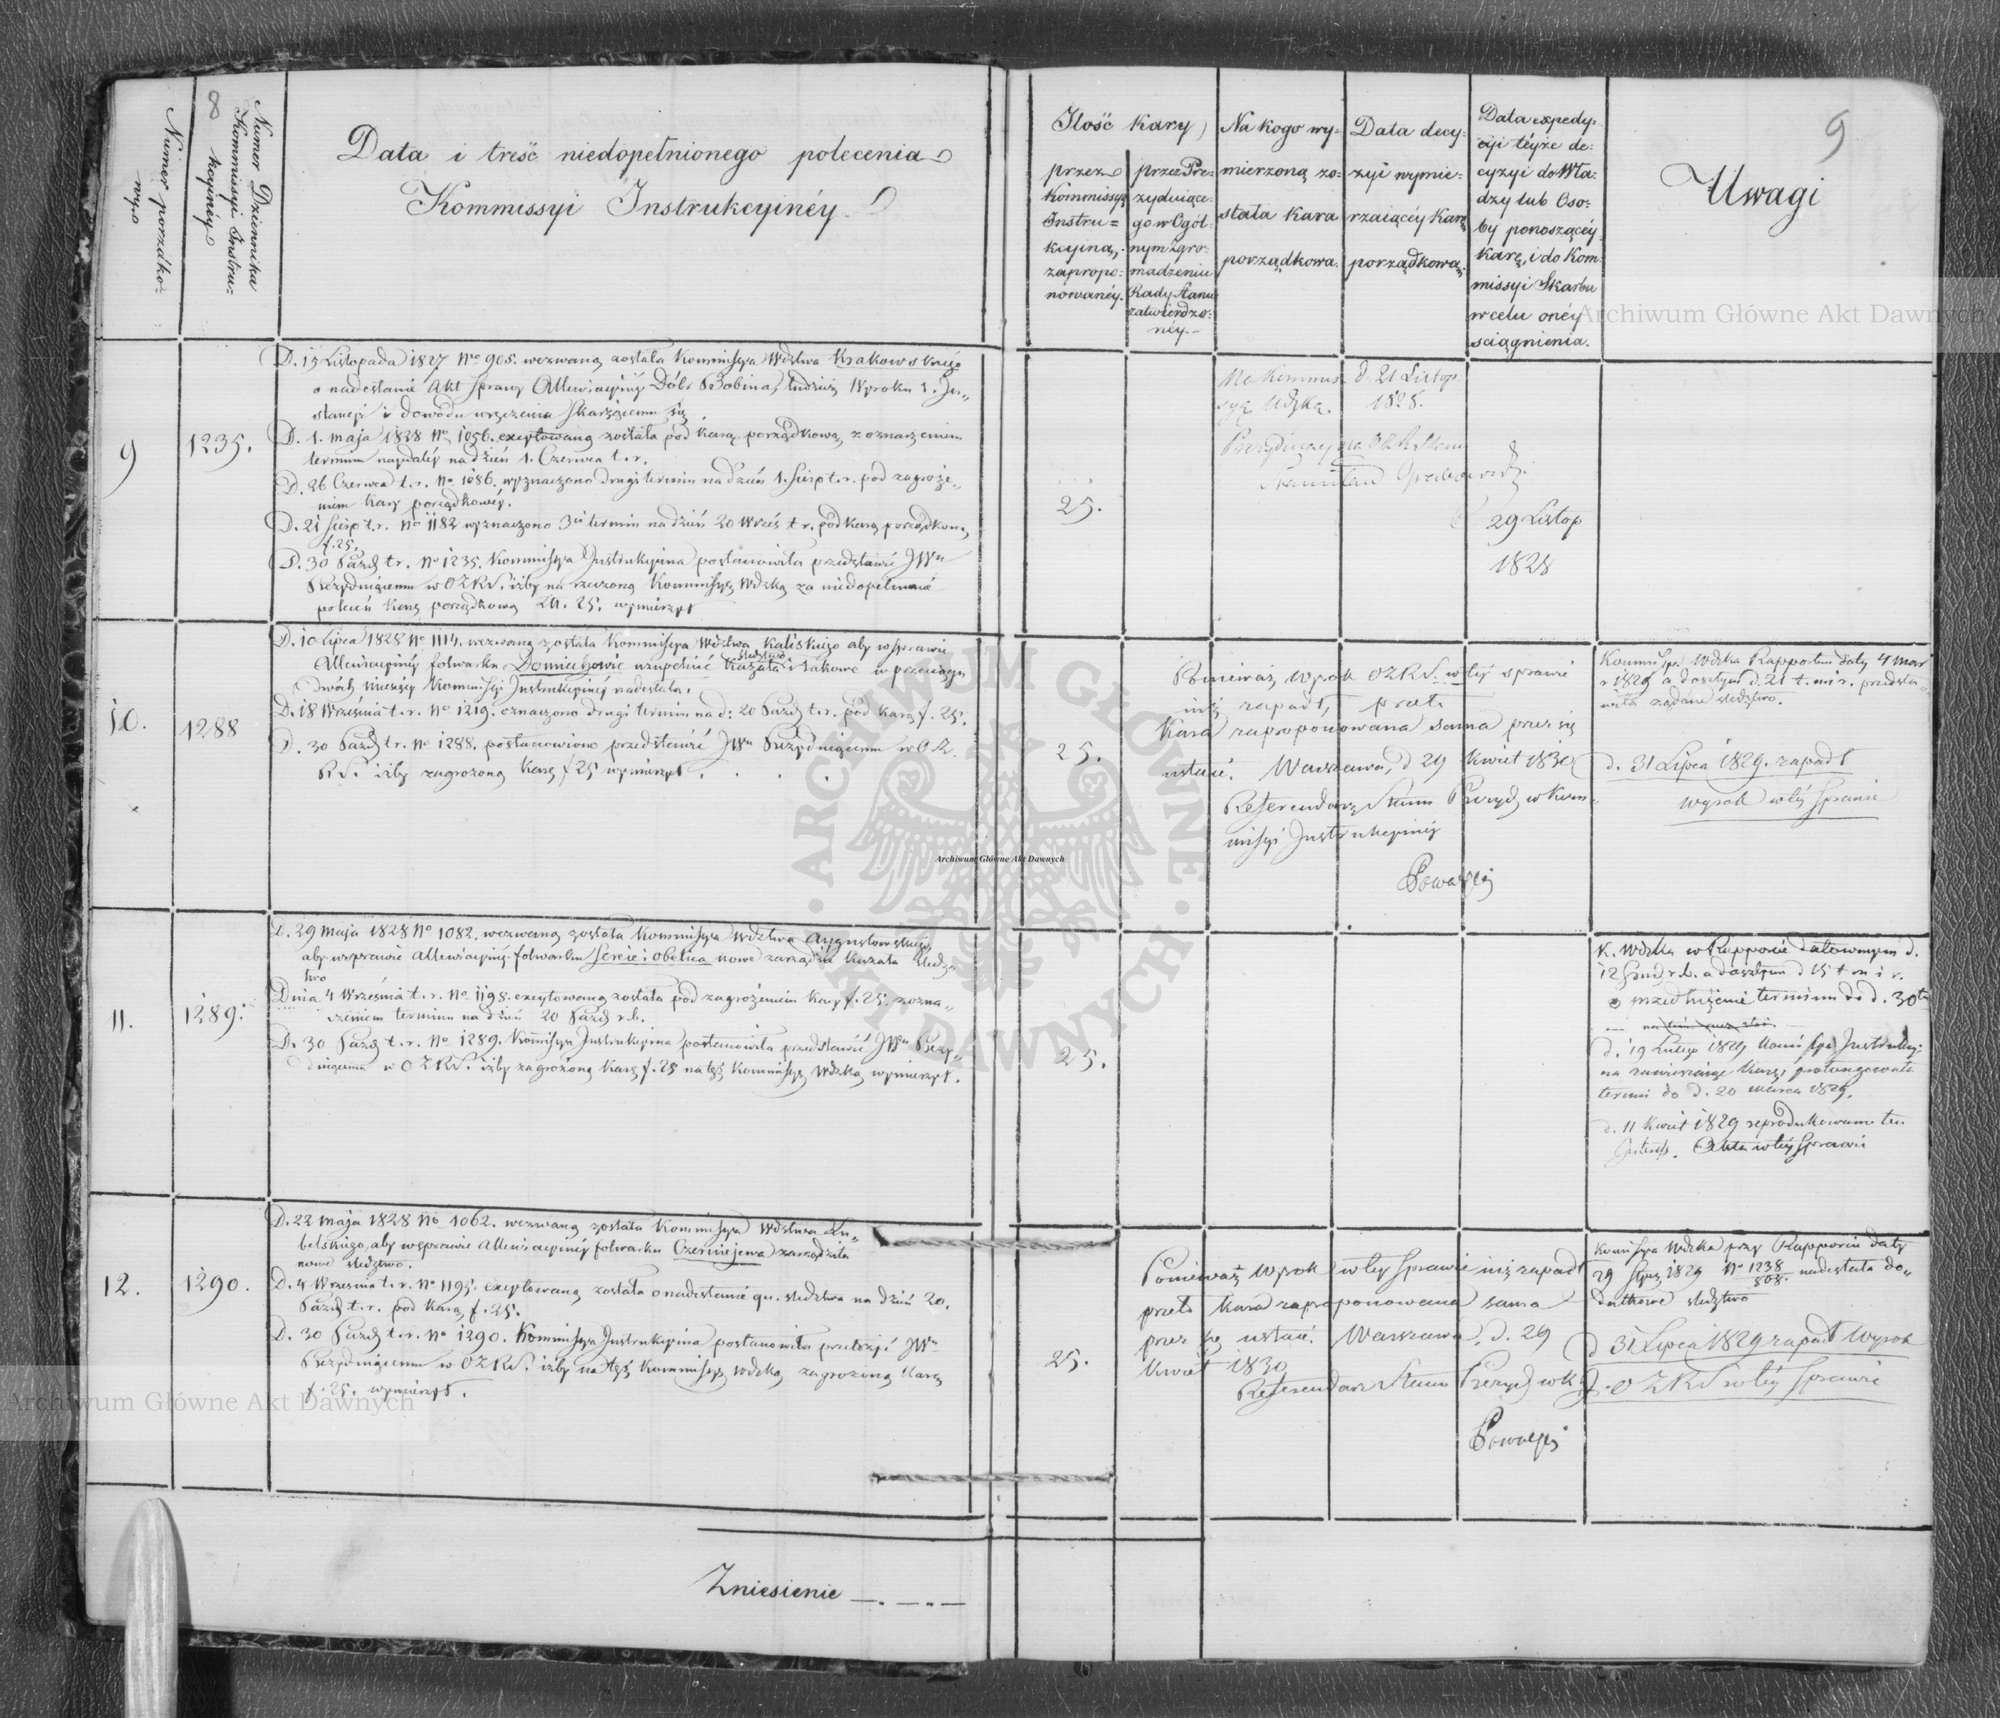 8
Numer porządko-
wy
Numer Dziennika
Kommissyi Instru-
kcyinéy
Data i treść niedopełnionego polecenia
Kommissyi Instrukcyinéy
Ilość kary
przez
Kommissyą
Instru=
kcyiną,
zapropo-
nowanéy.
przez Pre-
zyduiące-
go w Ogól-
nym Zgro-
madzeniu
Rady Stanu
zatwierdzo-
néy.
Na kogo wy-
mierzoną zo-
stała kara
porządkowa.
Data decy-
zyi wymie-
rzaiącéy karę
porządkową.
Data expedy-
cyi téyże de-
cyzyi do Wła-
dzy lub Oso-
by ponoszącéy
karę, i do Kom-
missyi Skarbu
w celu onéy
sciągnienia.
Uwagi
9
9
1235.
D. 15 Listopada 1827 No 905. wezwaną została Kommissya Wdztwa Krakowskiégo
o nadesłanie Akt sprawy Allewiacyinéy Dóbr Bobina, tudzież Wyroku 1. In-
stancyi i dowodu wręczenia skarżącemu się
D. 1. Maja 1828 No 1056. excytowaną została pod karą porządkową, z oznaczeniem
terminu naydaléy na dzień 1. Czerwca t. r.
D. 26 Czerwca t. r. No 1086. wyznaczono drugi termin na dzień 1. Sierp t. r. pod zagroże-
niem kary porządkowéy.
D. 21 Sierp t. r. No 1182 wyznaczono 3ci termin na dzień 20 Wrześ t r. pod karą porządkow,
f. 25.
D. 30 Paźd t r. No 1235. Kommissya Instrukcyina postanowiła przedstawić JWu
Prezyduiącemu w OZRS. iżby na rzeczoną Kommissyą Wdzką za niedopełnienie
poleceń karę porządkową Zł. 25. wymierzył
25.
Na Kommis-
syą Wdzką.
d. 21 Listop
1828.
Prezyduiący na OZR Stanu
Stanisław
29 Listop
1828
10.
1288
D. 10 Lipca 1828 No 1114. wezwaną została Kommissya Wdztwa Kaliskiego aby w sprawie
Allewiacyinéy folwarku Domiechowic uzupełnić śledztwo kazała i takowe w przeciągu
dwóch miesięcy Kommissyi Instrukcyinéy nadesłała.
D. 18 Września t. r. No 1219. oznaczono drugi termin na d: 20 Paźd t. r. pod karą f. 25.
D. 30 Paźd t r. No 1288. postanowiono przedstawić JWu Prezyduiącemu w OZ
RS. iżby zagrożoną karę f 25 wymierzył.
25.
Ponieważ wyrok OZRS. w téy sprawie
iuż zapadł, przeto
kara zaproponowana sama przez się
ustaie. Warszawa, d 29 Kwiet 1830
Referendarz Stanu Prezyd w Kom-
missyi Instrukcyinéy
Kommissya Wdzka Rapportem daty 4 Mar
r 1829 a doszłym d. 21 t. m i r. przedsta-
wiła żądane śledztwo.
d. 31 Lipca 1829. zapadł
wyrok w téy sprawie
11.
1289.
D. 29 Maja 1828 No 1082. wezwaną została Kommissya Wdztwa Augustowskiego
aby w sprawie Allewiacyinéy folwarku Sereie i Obelica nowe zarządzić kazała śledz
two
Dnia 4 Września t. r. No 1198. excytowaną została pod zagrożeniem kary f. 25. z ozna-
czeniem terminu na dzień 20 Paźd r. b.
D. 30 Paźd t. r. No 1289. Kommissya Instrukcyina postanowiła przedstawić JWu Prezy-
duiącemu w OZRS. iżby zagrożoną karę f. 25 na tęż Kommissyą Wdzką wymierzył.
25.
K. Wdzka w Rapporcie datowanym d.
12 Grud r. b. a doszłym d 15 t m i r.
o przedłużenie terminu do d. 30
d. 19 Lutego 1829 Kommissya Instrukcy:
na zawieszając karę, prolongowała
termin do d. 20 Marca 1829.
d. 11 Kwiet 1829 reprodukowano ten
Akta w téy sprawie
12.
1290.
D. 22 Maja 1828 No 1062. wezwaną została Kommissya Wdztwa Lu-
belskiego, aby w sprawie Allewiacyinéy folwarku Czerniejewa zarządziła
nowe śledztwo.
D. 4 Września t. r. No 1195. excytowaną została o nadesłanie qu. śledztwa na dzień 20.
Paźd t. r. pod karą f. 25.
D. 30 Paźd t. r. No 1290. Kommissya Instrukcyina postanowiła przełożyć JWu
Prezyduiącemu w OZRS. iżby na tęż Kommissyą Wdzką zagrożoną karę
f. 25. wymierzył.
25.
Ponieważ wyrok w téy sprawie iuż zapadł
przeto kara zaproponowana sama
przez się ustaie. Warszawa, d. 29
Kwiet 1830
Referendarz Stanu Prezyd w K J.
Kommissya Wdzka przy Rapporcie daty
29 Stycz 1829 No 1238/808. nadesłała do-
datkowe śledztwo
d 31 Lipca 1829 zapadł Wyrok
OZRS w téy sprawie
Zniesienie
Archiwum Główne Akt Dawnych
Archiwum Główne Akt Dawnych
Archiwum Główne Akt Dawnych
ARCHIWUM GŁÓWNE AKT DAWNYCH